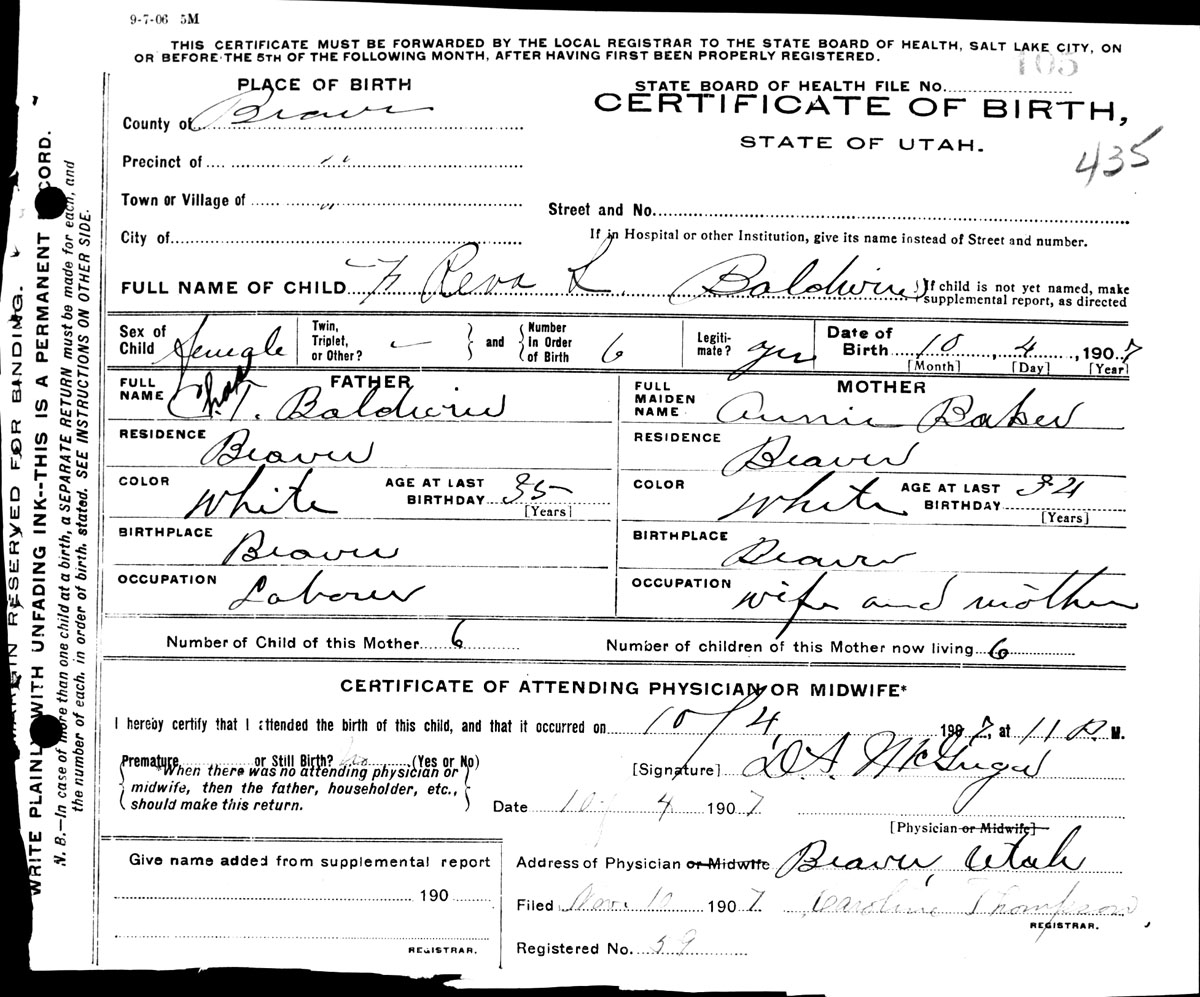 9-7-06 5M
THIS CERTIFICATE MUST BE FORWARDED BY THE LOCAL REGISTRAR TO THE STATE BOARD OF HEALTH, SALT LAKE CITY, ON
OR BEFORE THE 5TH OF THE FOLLOWING MONTH, AFTER HAVING FIRST BEEN PROPERLY REGISTERED.
105
PLACE OF BIRTH
STATE BOARD OF HEALTH FILE NO.
CERTIFICATE OF BIRTH,
STATE OF UTAH.
435
County of Beaver
Precinct of "
Town or Village of "
Street and No.
City of
If in Hospital or other Institution, give its name instead of Street and number.
FULL NAME OF CHILD Reva L. Baldwin
If child is not yet named, make
supplemental report, as directed
Sex of Child Female
Twin, Triplet, or Other? —
and
Number In Order of Birth 6
Legiti- mate? yes
Date of Birth 10, 4, 1907
[Month] [Day] [Year]
FATHER
FULL NAME Chas T. Baldwin
RESIDENCE Beaver
COLOR White AGE AT LAST BIRTHDAY 35
[Years]
BIRTHPLACE Beaver
OCCUPATION Laborer
MOTHER
FULL MAIDEN NAME Annie Baker
RESIDENCE Beaver
COLOR White AGE AT LAST BIRTHDAY 34
[Years]
BIRTHPLACE Beaver
OCCUPATION wife and mother
Number of Child of this Mother 6
Number of children of this Mother now living 6
CERTIFICATE OF ATTENDING PHYSICIAN OR MIDWIFE*
I hereby certify that I attended the birth of this child, and that it occurred on 10/4, 1907, at 11 P. M.
Premature or Still Birth? No (Yes or No)
*When there was no attending physician or
midwife, then the father, householder, etc.,
should make this return.
[Signature] McGregor
Date 10/ 4 1907
[Physician or Midwife]
Give name added from supplemental report
190
REGISTRAR.
Address of Physician or Midwife Beaver, Utah
Filed Nov. 10 1907 Caroline Thompson
REGISTRAR.
Registered No. 59
MARGIN RESERVED FOR BINDING.
WRITE PLAINLY WITH UNFADING INK--THIS IS A PERMANENT RECORD.
N. B.—In case of more than one child at a birth, a SEPARATE RETURN must be made for each, and
the number of each, in order of birth, stated. SEE INSTRUCTIONS ON OTHER SIDE.